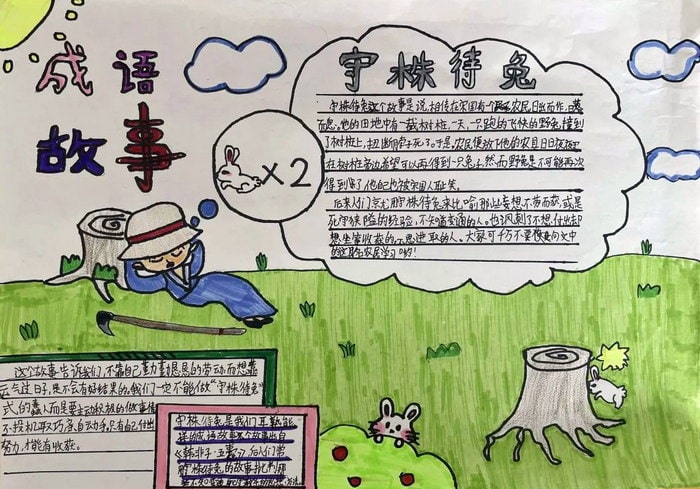 成语
故事
守株待兔
×2
守株待兔这个故事是说,相传在宋国有一个农民日出而作,日落
而息。他的田地中有一截树桩,一天,一只跑的飞快的野兔撞到
了树桩上,扭断脖子死了。于是,农民便放下他的农具日日夜夜
在树桩旁边希望可以再得到一只兔子,然而野兔是不可能再次
得到的了他自己也被宋国人耻笑。
后来人们常用守株待兔来比喻那些妄想不劳而获,或是
死守狭隘的经验,不知道变通的人。也讽刺了不想付出却
想坐享收获的不思进取的人。大家可千万不要像文中
的这个农民学习哟!
这个故事告诉我们,不靠自己勤勤恳恳的劳动,而想靠
运气过日子,是不会有好结果的,我们一定不能做"守株待兔"
式的蠢人而是要主动积极的做事情
不投机取巧,亲自动手,只有自己付出
努力,才能有收获。
守株待兔是我们耳熟能
详的成语故事,这个故事出自
《韩非子·五蠹》,
守株待兔的故事